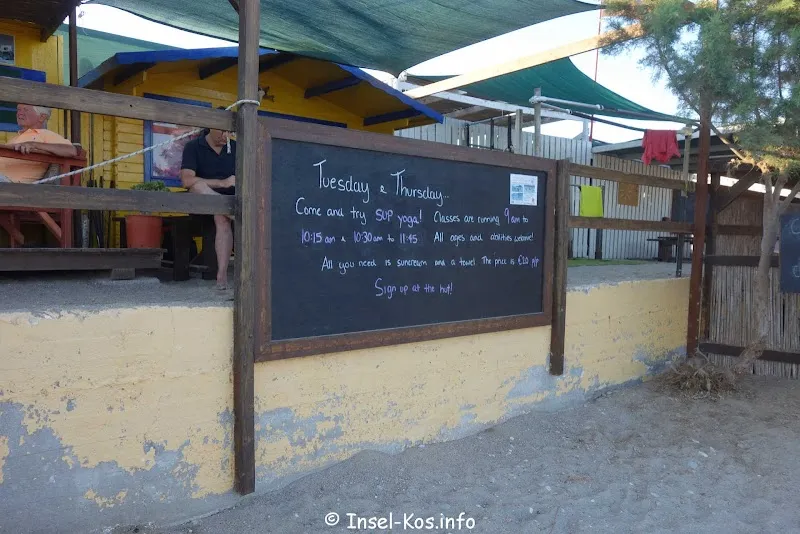 Tuesday & Thursday..
Come and try SUP yoga! Classes are running 9am to
10:15am & 10:30am to 11:45 All ages and abilities welcome!
All you need is suncream and a towel. The price is €20 p/p
Sign up at the hut!
© Insel-Kos.info